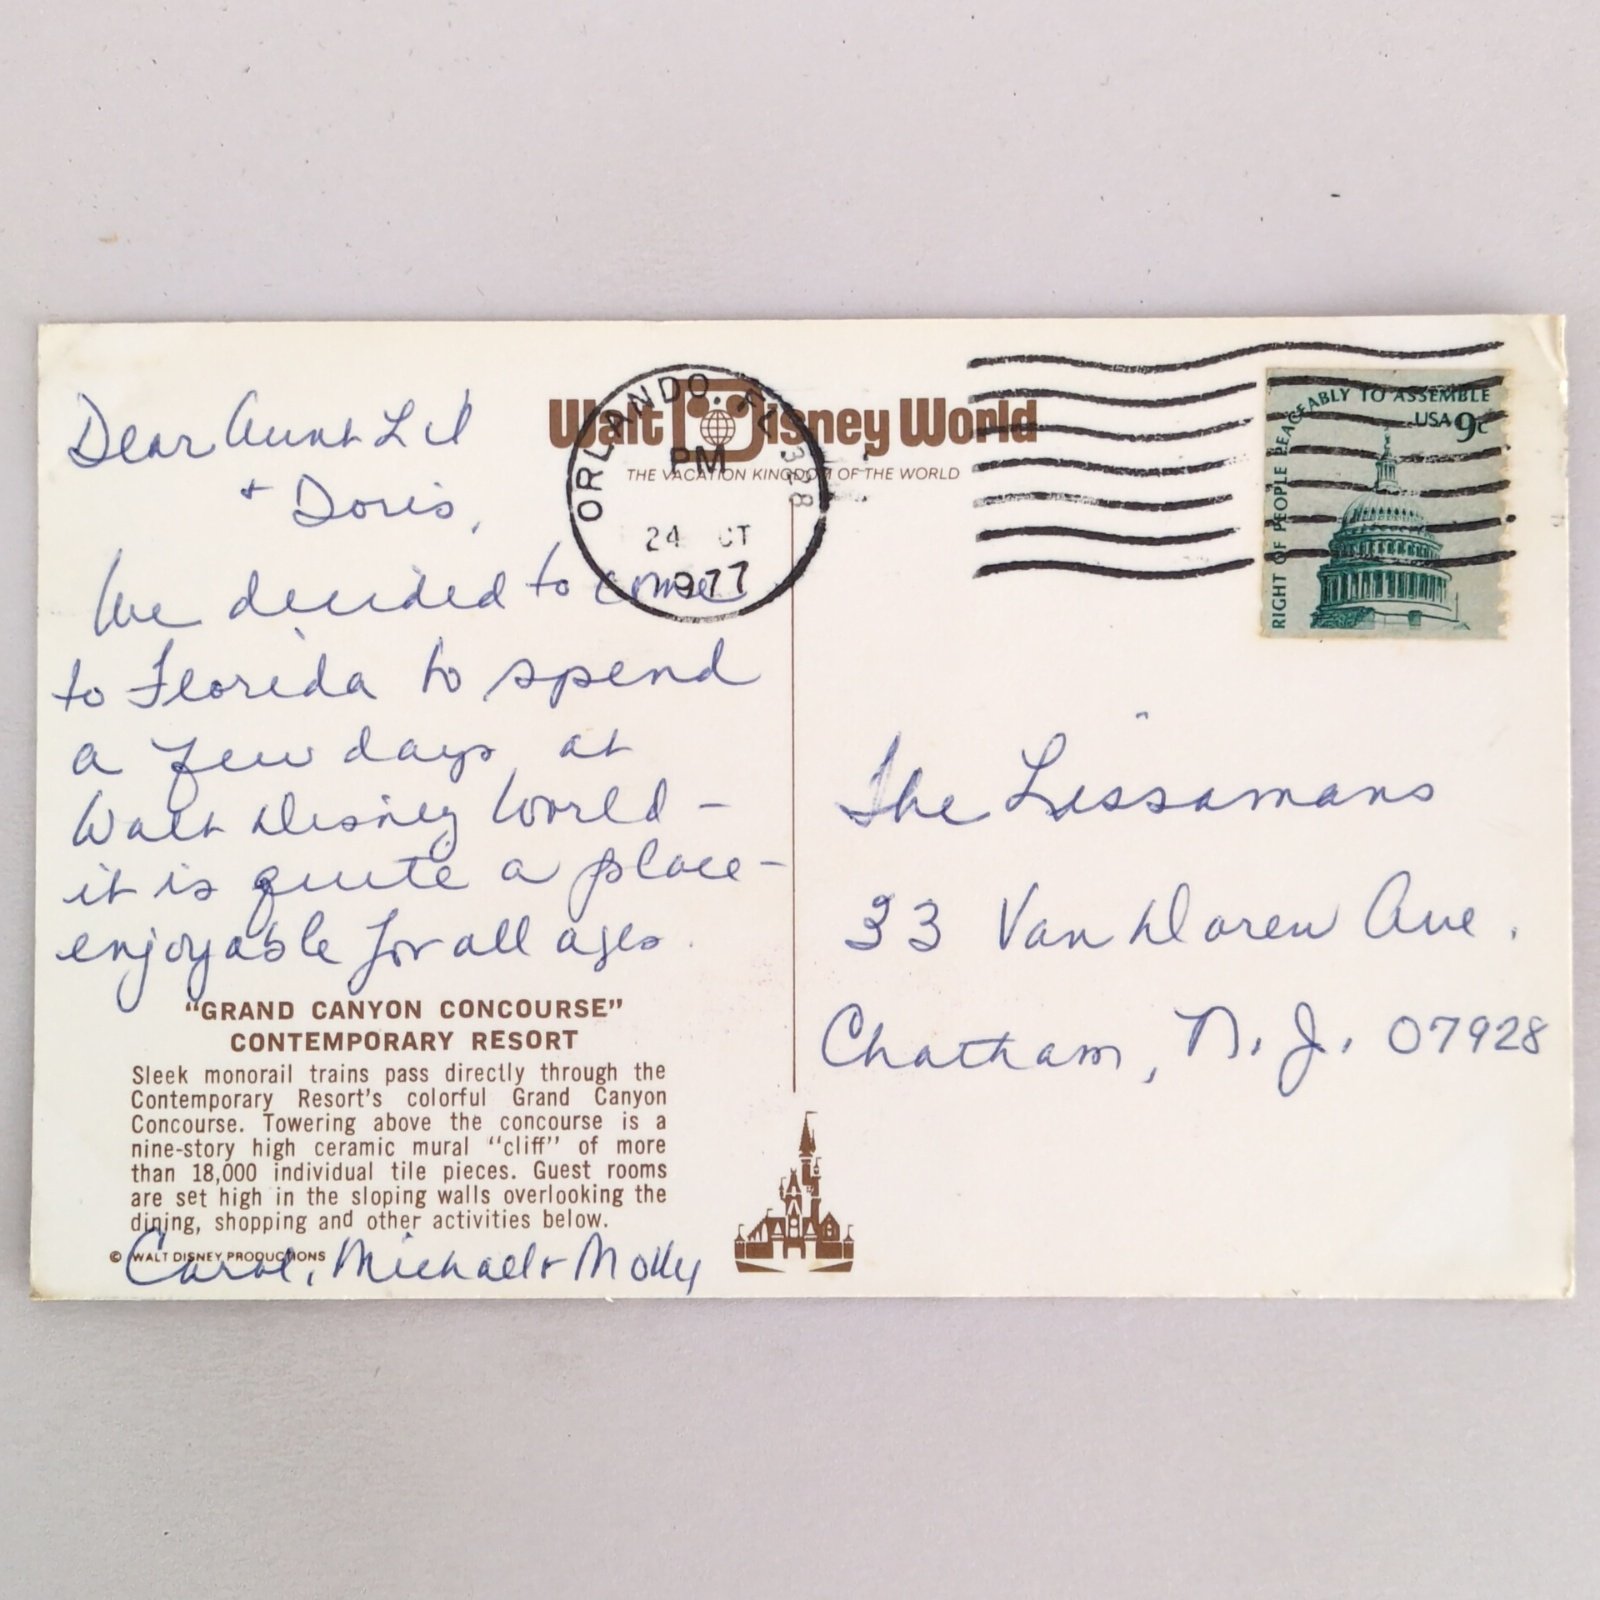 Walt Disney World
THE VACATION KINGDOM OF THE WORLD
ORLANDO FL 328
PM
24 CT
1977
RIGHT OF PEOPLE PEACEABLY TO ASSEMBLE
USA 9c
Dear Aunt Lil
+ Doris,
We decided to come
to Florida to spend
a few days at
Walt Disney World -
it is quite a place -
enjoyable for all ages.
"GRAND CANYON CONCOURSE"
CONTEMPORARY RESORT
Sleek monorail trains pass directly through the
Contemporary Resort's colorful Grand Canyon
Concourse. Towering above the concourse is a
nine-story high ceramic mural "cliff" of more
than 18,000 individual tile pieces. Guest rooms
are set high in the sloping walls overlooking the
dining, shopping and other activities below.
© WALT DISNEY PRODUCTIONS
Carol, Michael + Molly
The Lissamans
33 Van Doren Ave.
Chatham, N.J. 07928